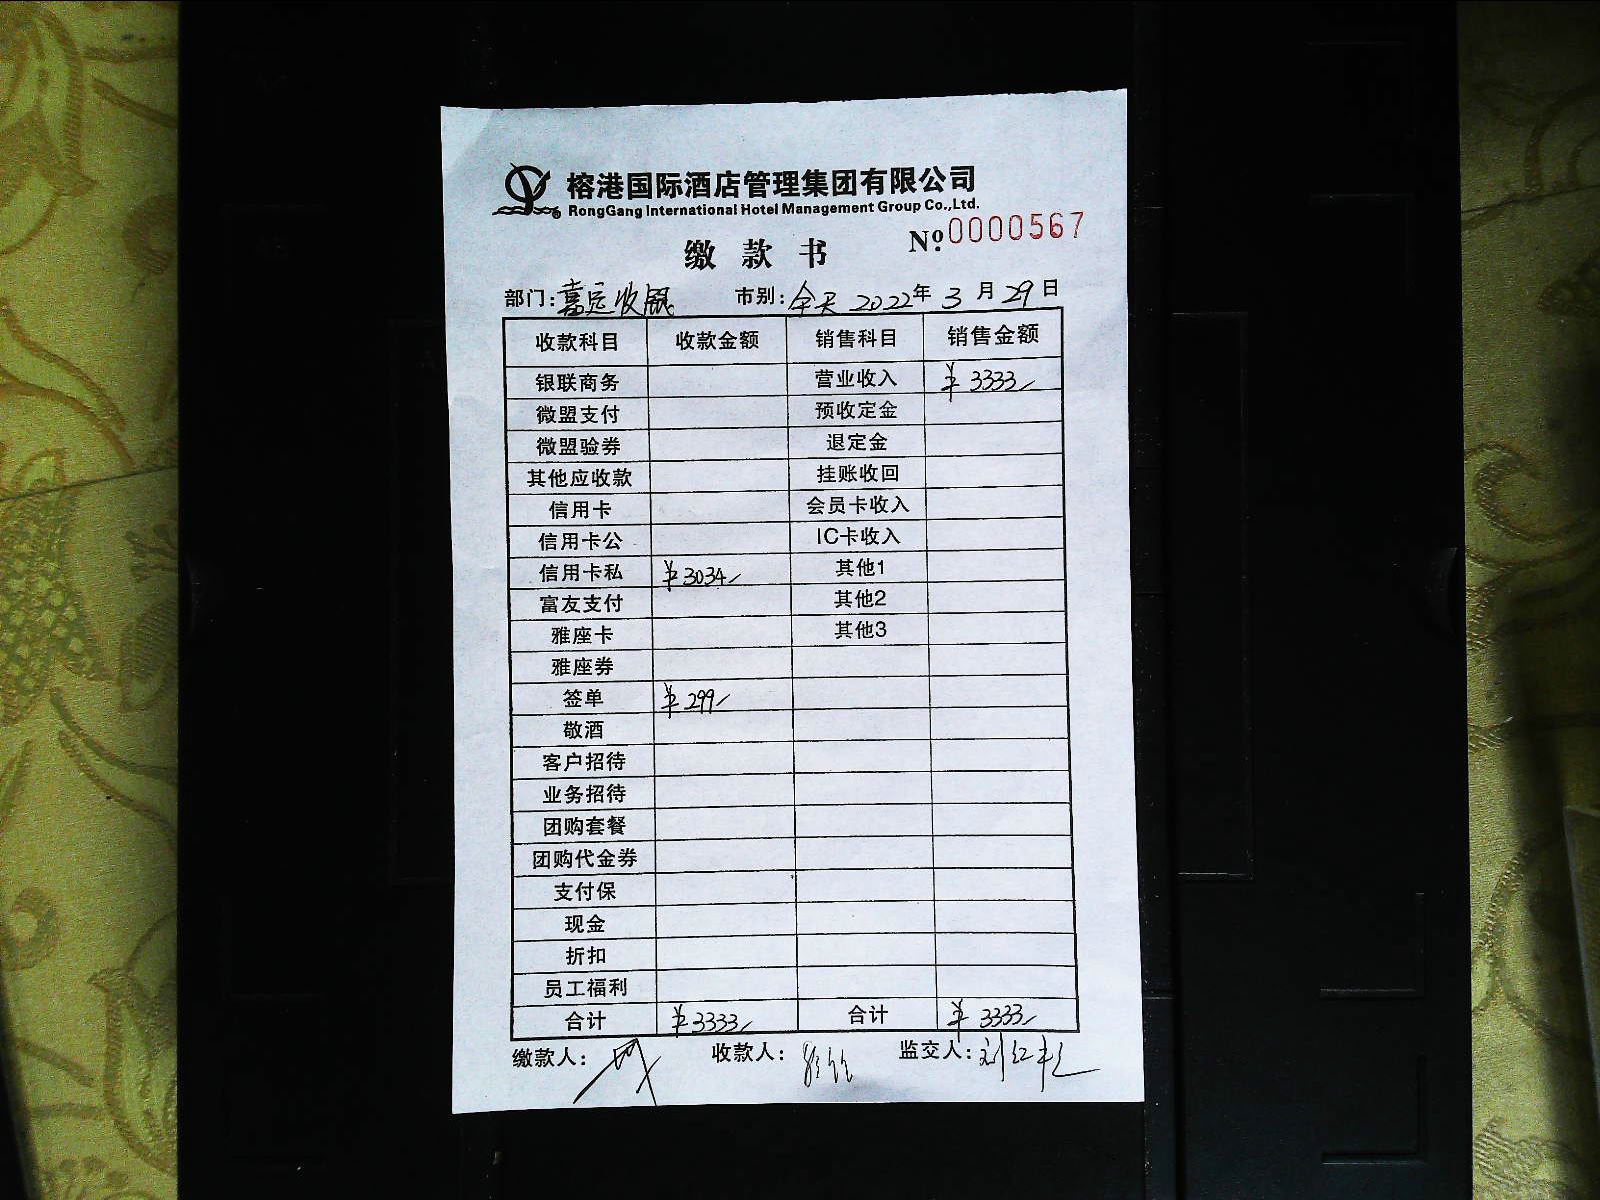 榕港国际酒店管理集团有限公司
RongGang International Hotel Management Group Co.,Ltd.
缴款书 Nº:0000567
部门:嘉运收银 市别:全天 2022年3月29日
收款科目 收款金额 销售科目 销售金额
银联商务 营业收入 ¥3333/
微盟支付 预收定金
微盟验券 退定金
其他应收款 挂账收回
信用卡 会员卡收入
信用卡公 IC卡收入
信用卡私 ¥3034/ 其他1
富友支付 其他2
雅座卡 其他3
雅座券
签单 ¥299/
敬酒
客户招待
业务招待
团购套餐
团购代金券
支付保
现金
折扣
员工福利
合计 ¥3333/ 合计 ¥3333/
缴款人: 收款人: 监交人:刘红